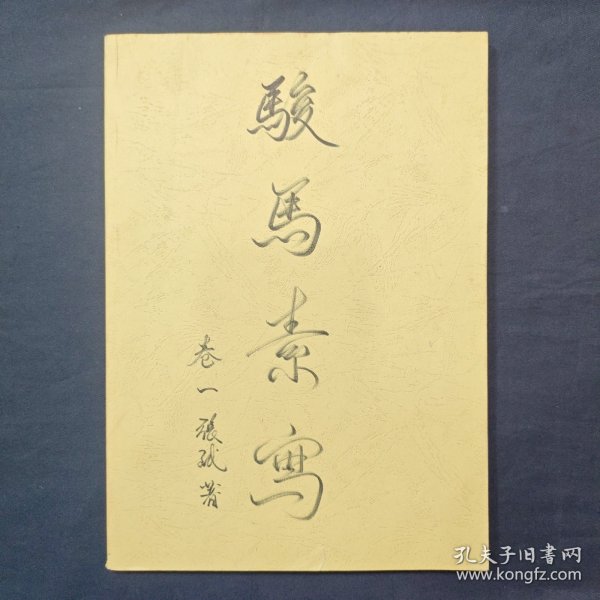 駿馬素寫
卷一 張 著
孔夫子旧書网
www.kongfz.com